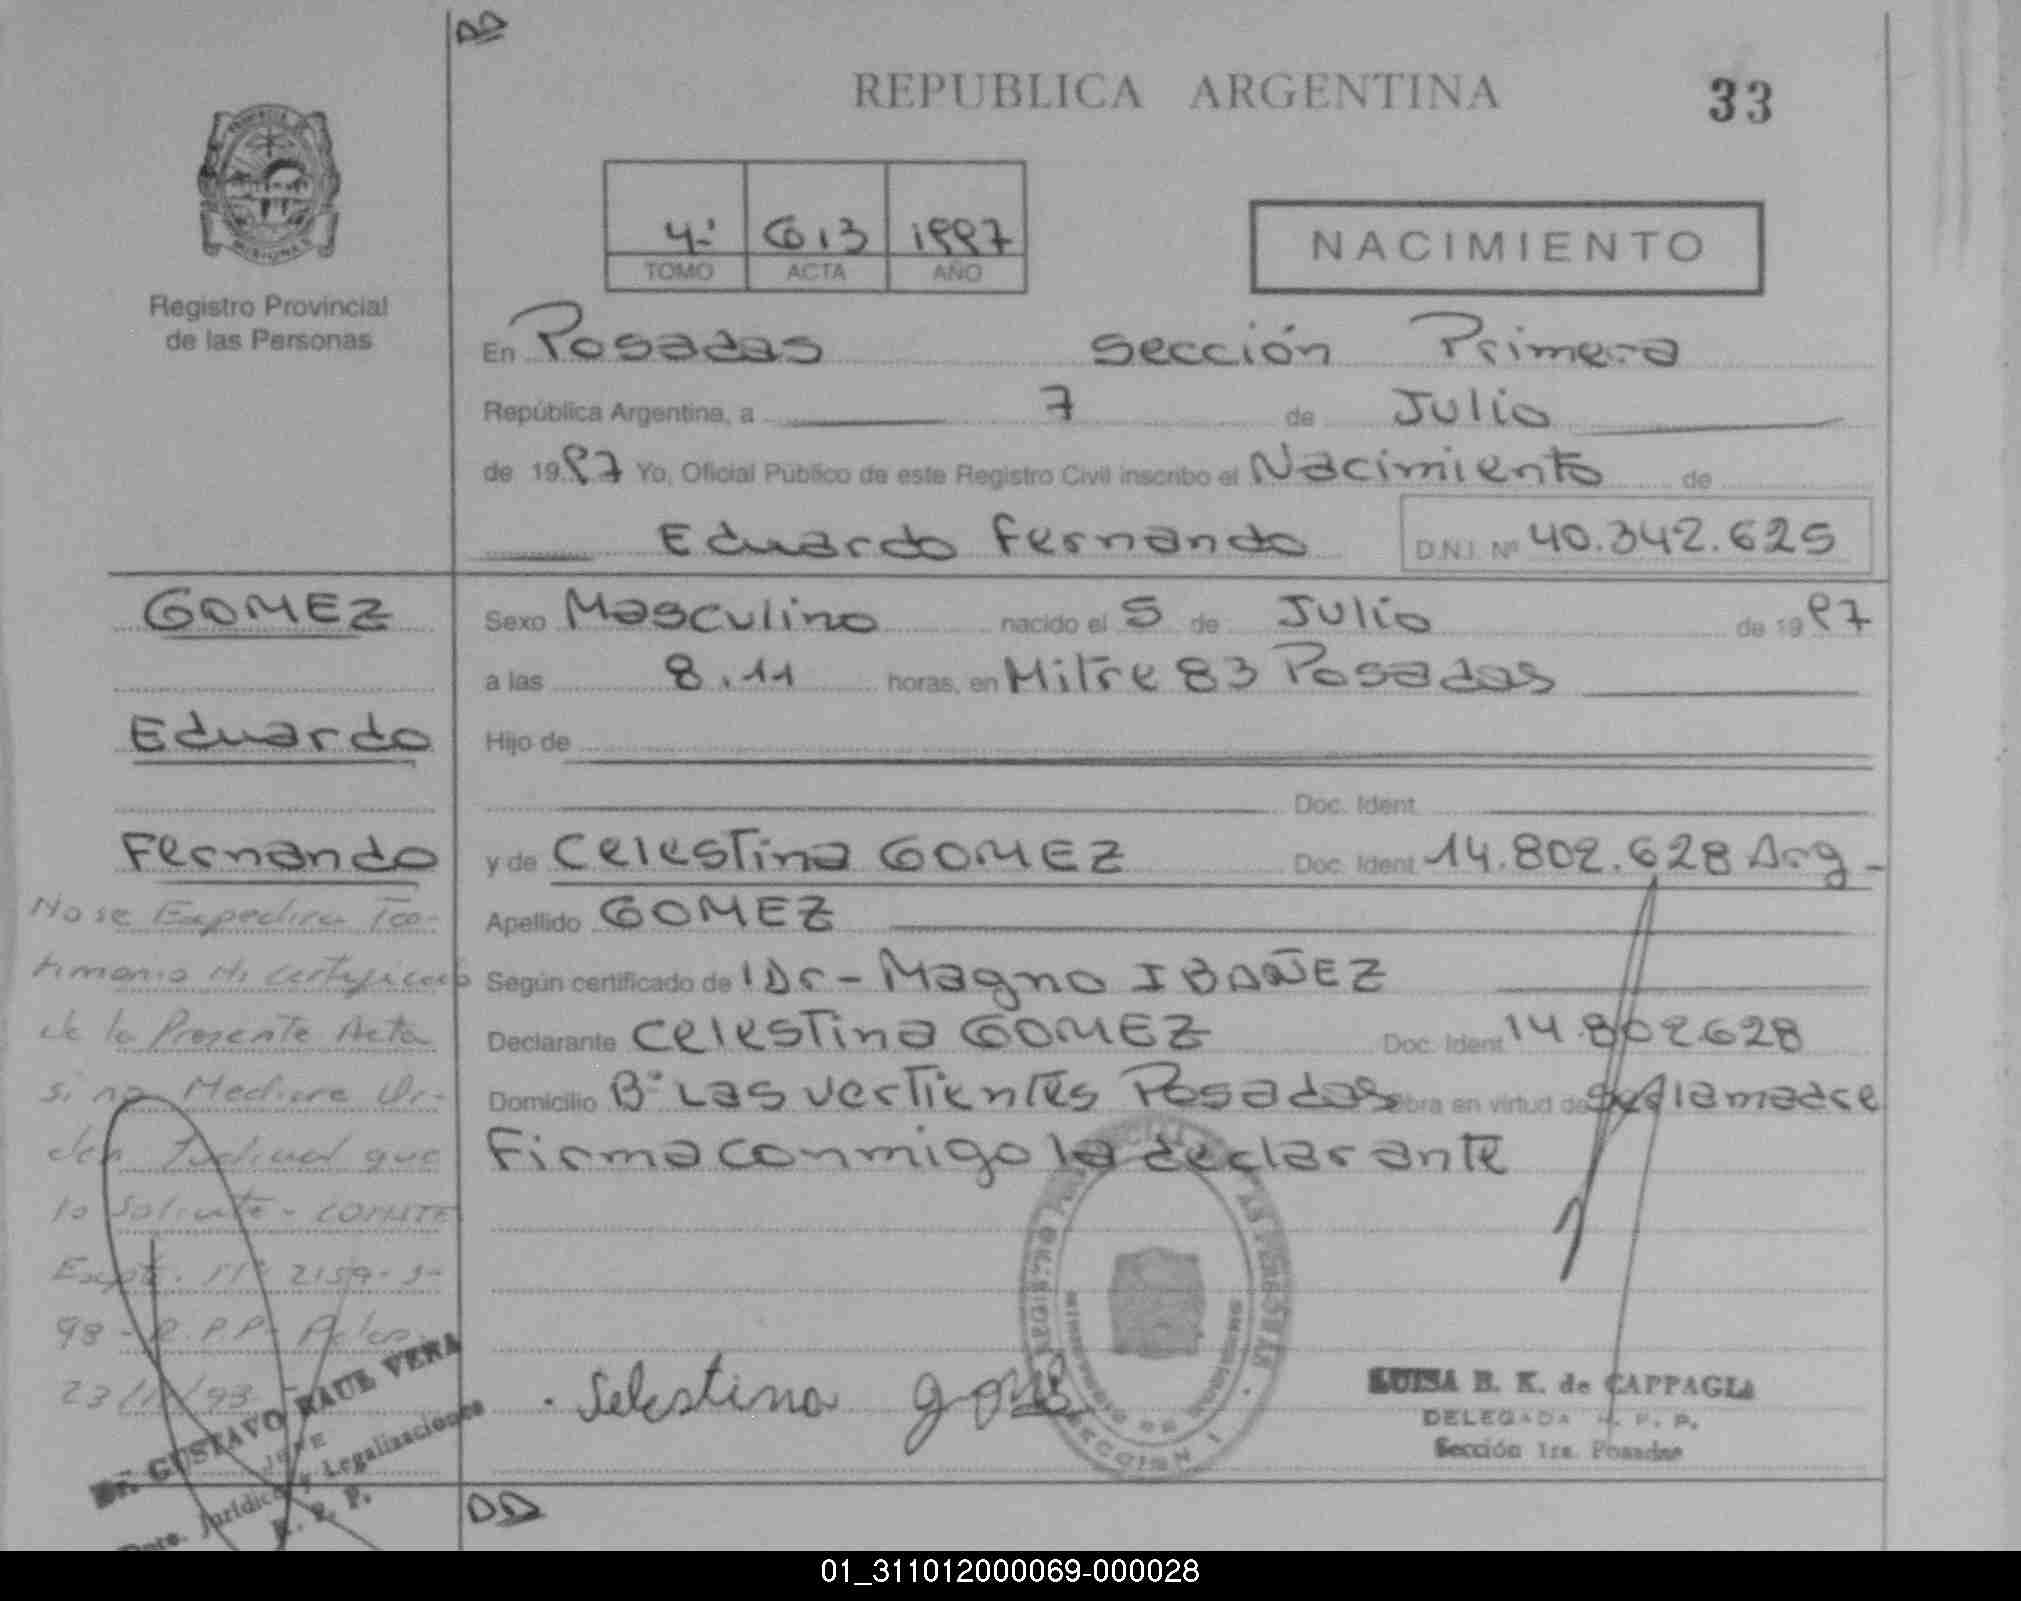 REPUBLICA ARGENTINA
33
4º 613 1997
TOMO ACTA AÑO
NACIMIENTO
Registro Provincial
de las Personas
En Posadas sección Primera
República Argentina, a 7 de Julio
de 1997 Yo, Oficial Público de este Registro Civil inscribo el Nacimiento de
Eduardo Fernando D.N.I. Nº 40.342.625
GOMEZ
Eduardo
Fernando
Sexo Masculino nacido el 5 de Julio de 1997
a las 8.11 horas, en Mitre 83 Posadas
Hijo de
Doc. Ident.
y de Celestina GOMEZ Doc. Ident. 14.802.628 Arg-
Apellido GOMEZ
Según certificado de Dr- Magno IBAÑEZ
Declarante Celestina GOMEZ Doc. Ident. 14.802628
Domicilio Bº Las Vertientes Posadas Obra en virtud de ser la madre
Firma conmigo la declarante
No se Expedira Tes-
timonio ni certificado
de la Presente Acta
si no Mediare Or-
den Judicial que
lo Solicite - CONSTE
Expt. Nº 2159-
98 - R.P.P-
23/ /93
Dr. GUSTAVO RAUL VERA
JEFE
Dpto. Jurídico y Legalizaciones
R. P. P.
Selestina gomez
SECCION 1
LUISA B. K. de CAPPAGLI
DELEGADA R. P. P.
Sección 1ra. Posadas
01_311012000069-000028